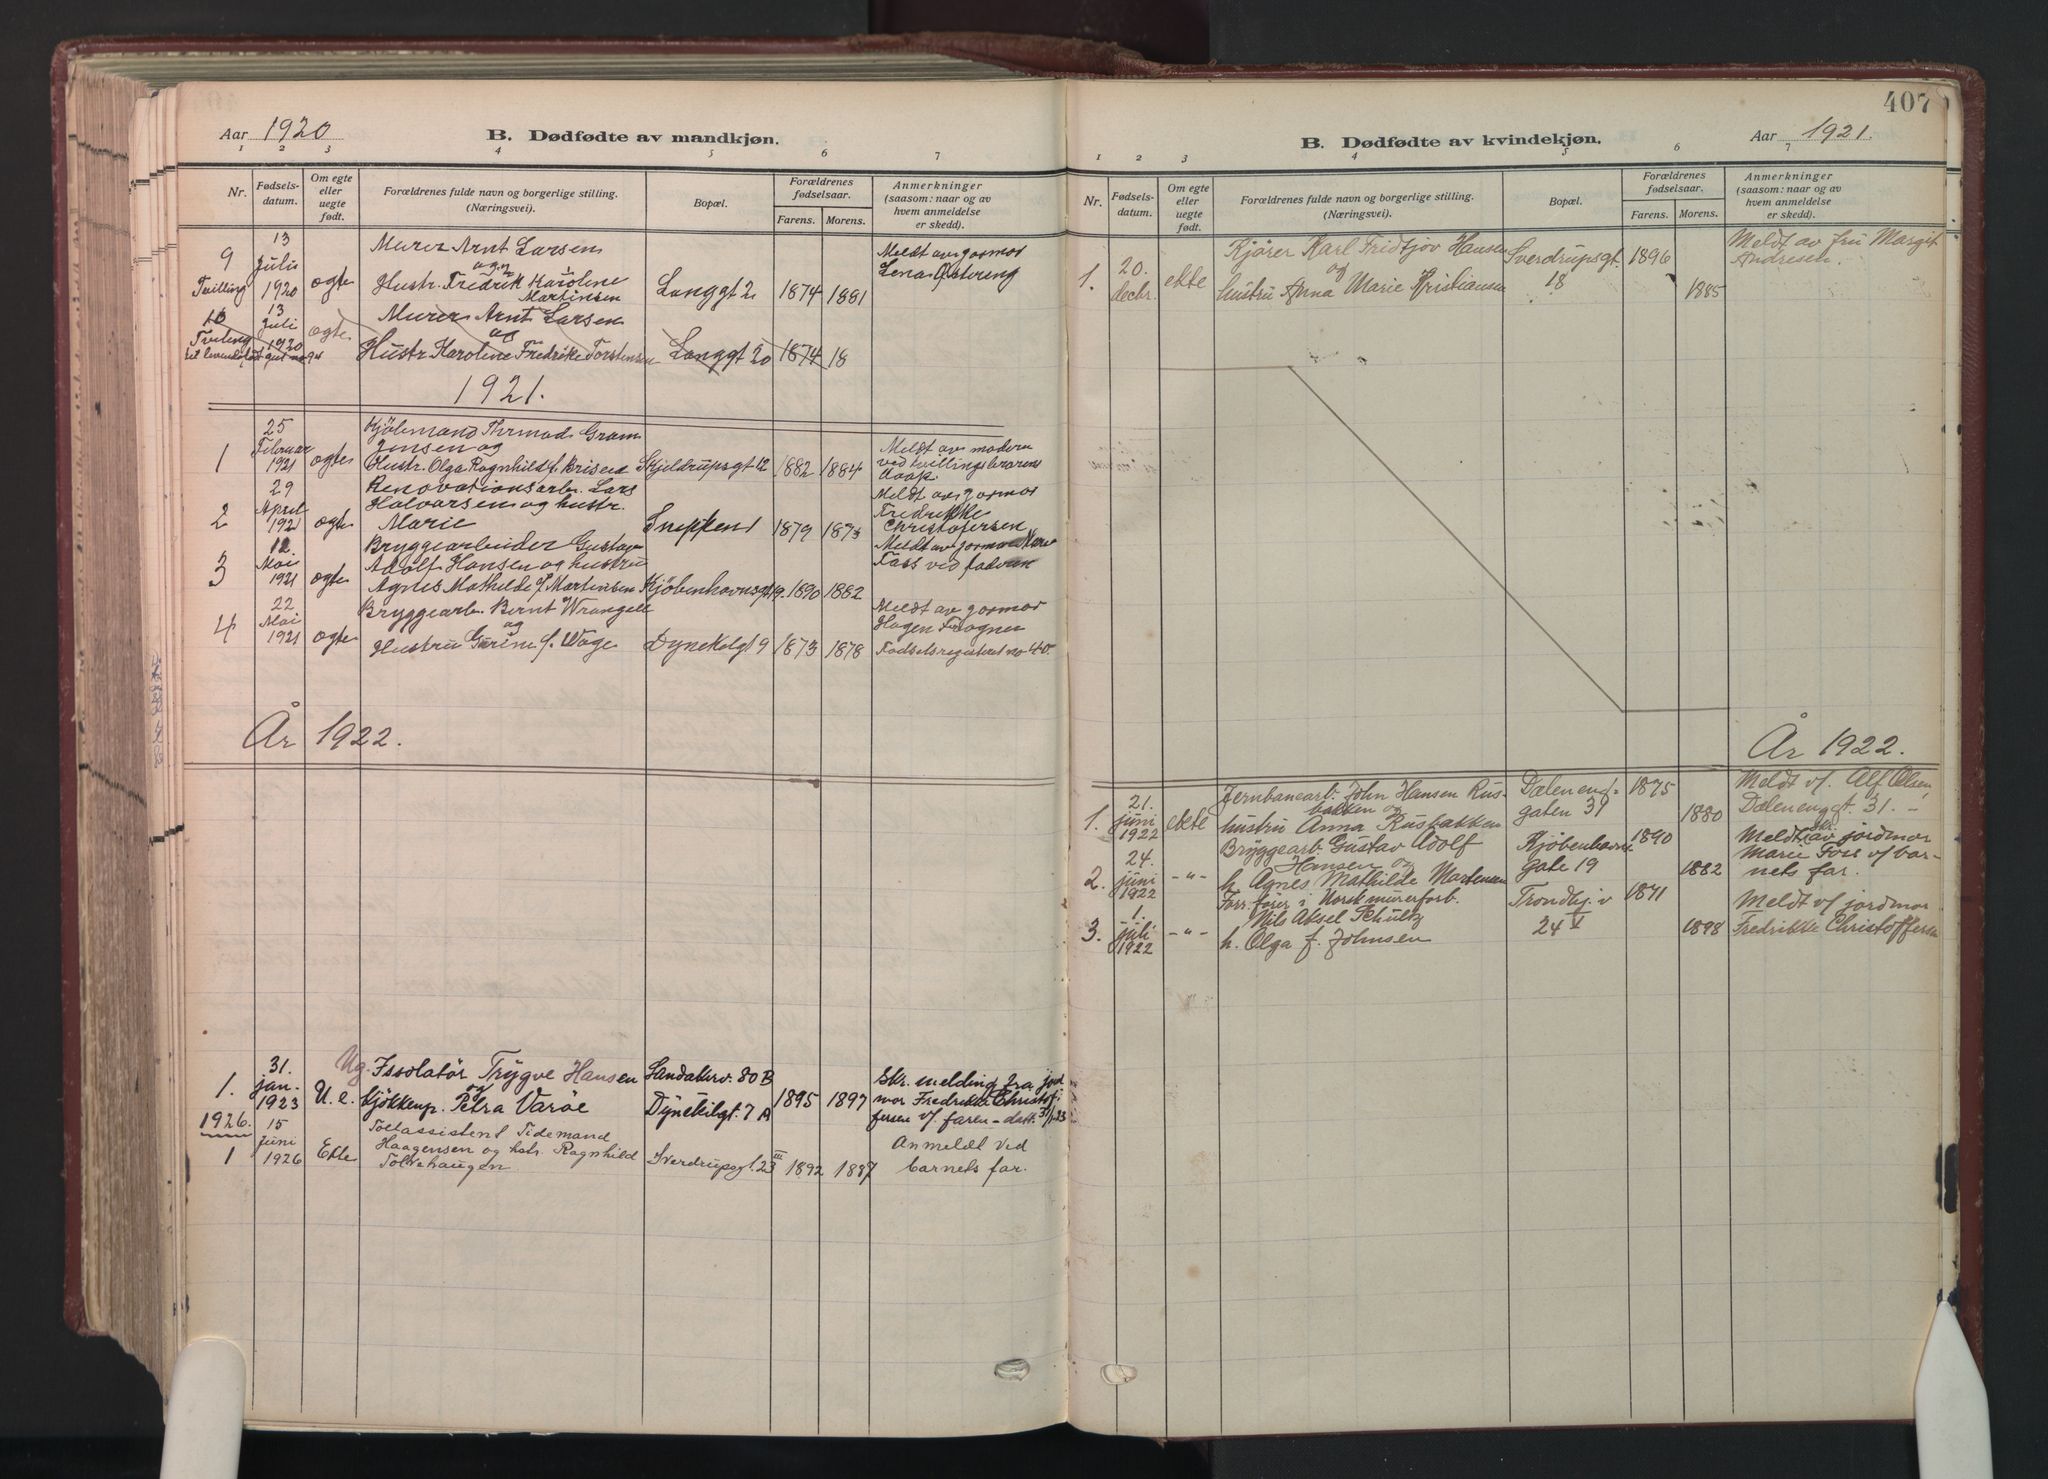 Aar 1920
B. Dødfødte av mandkjøn.
1 2 3 4 5 6 7
Nr.
Fødsels-
datum.
Om egte
eller
uegte
født.
Forældrenes fulde navn og borgerlige stilling.
(Næringsvei).
Bopæl.
Forældrenes
fødselsaar.
Farens. Morens.
Anmerkninger
(saasom: naar og av
hvem anmeldelse
er skedd).
13
9 Juli Murer Arnt Larsen Meldt av jormor
og
Tvilling 1920 ogte Hustr. Fredrik Karoline Langgt 2 1874 1881 Lena
Martinsen
13
10 Juli Murer Arnt Larsen
1920 ogte og
Hustr Karoline Fredrikke Torstensen Langgt 20 1874 18
1921.
25
Februar Gram
1 1921 ogte Jensen og Meldt av modern
Hustr. Olga Ragnhild f. Skjeldrupsgt 12 1882 1884 ved
29 Renovationsarb. Lars Meldt av jormor
2 April Halvorsen og hustr. Fredrikke
1921 ogte Marie Snippen 1 1879 1873 Christofersen
12 Bryggearbeider Gustav Meldt av jormor
3 Mai Adolf Hansen og hustru Fass ved faderen
1921 ogte Agnes Mathilde f Martinsen Kjöbenhavnsgt 19. 1890 1882
22 Bryggearb. Bernt Wrangell Meldt av jormor
4 Mai og Hagen Frogner
1921 ogte Hustru Gurine f. Wage Dynekilgt 9 1873 1878 Fødselsregisteret no 40.
År 1922.
31. Ug. Issolatör Trygve Hansen Sandakerv. 80 B Skr. melding fra jord
1. jan. og
1923 U. e. Kjökkenp. Petra Varöe Dynekilgt. 7 A 1895 1897 mor Fredrikke Christof-
fersen v/ faren – dat. 31/1-23
1926. 15 Tollassistent Tidemand Anmeldt ved
Juni Haagensen og hstr. Ragnhild
1 1926 Ekte Tolvehaugen Sverdrupsgt. 23 III 1892 1887 barnets far.
407
B. Dødfødte av kvindekjøn.
Aar 1921.
1 2 3 4 5 6 7
Nr.
Fødsels-
datum.
Om egte
eller
uegte
født.
Forældrenes fulde navn og borgerlige stilling.
(Næringsvei).
Bopæl.
Forældrenes
fødselsaar.
Farens. Morens.
Anmerkninger
(saasom: naar og av
hvem anmeldelse
er skedd).
20. Kjører Karl Fridtjov Hansen Sverdrupsgt. 1896 Meldt av fru Margit
og Andresen.
1. decbr. ekte hustru Anna Marie Kristiansen 18 1885
År 1922.
21. Jernbanearb. John Hansen Rus- Dæleneng- 1875 Meldt v/ Alf Olsen,
juni bakken og
1. 1922 ekte hustru Anna Rusbakken gaten 31 1880 Dælenenggt. 31. –
24. Bryggearb. Gustav Adolf Kjøbenhavns 1890 Meldt skr. av jordmor
juni Hansen og Marie Foss v/ bar-
2. 1922 – " – h. Agnes Mathilde Martensen gate 19 1882 nets far.
1. Forr. fører i Norsk murerforb. Trondhj. v 1871 Meldt v/ jordmor
juli Nils Aksel Schultz
3. 1922 – " – h. Olga f. Johnsen 24 V 1898 Fredrikke Christoffersen